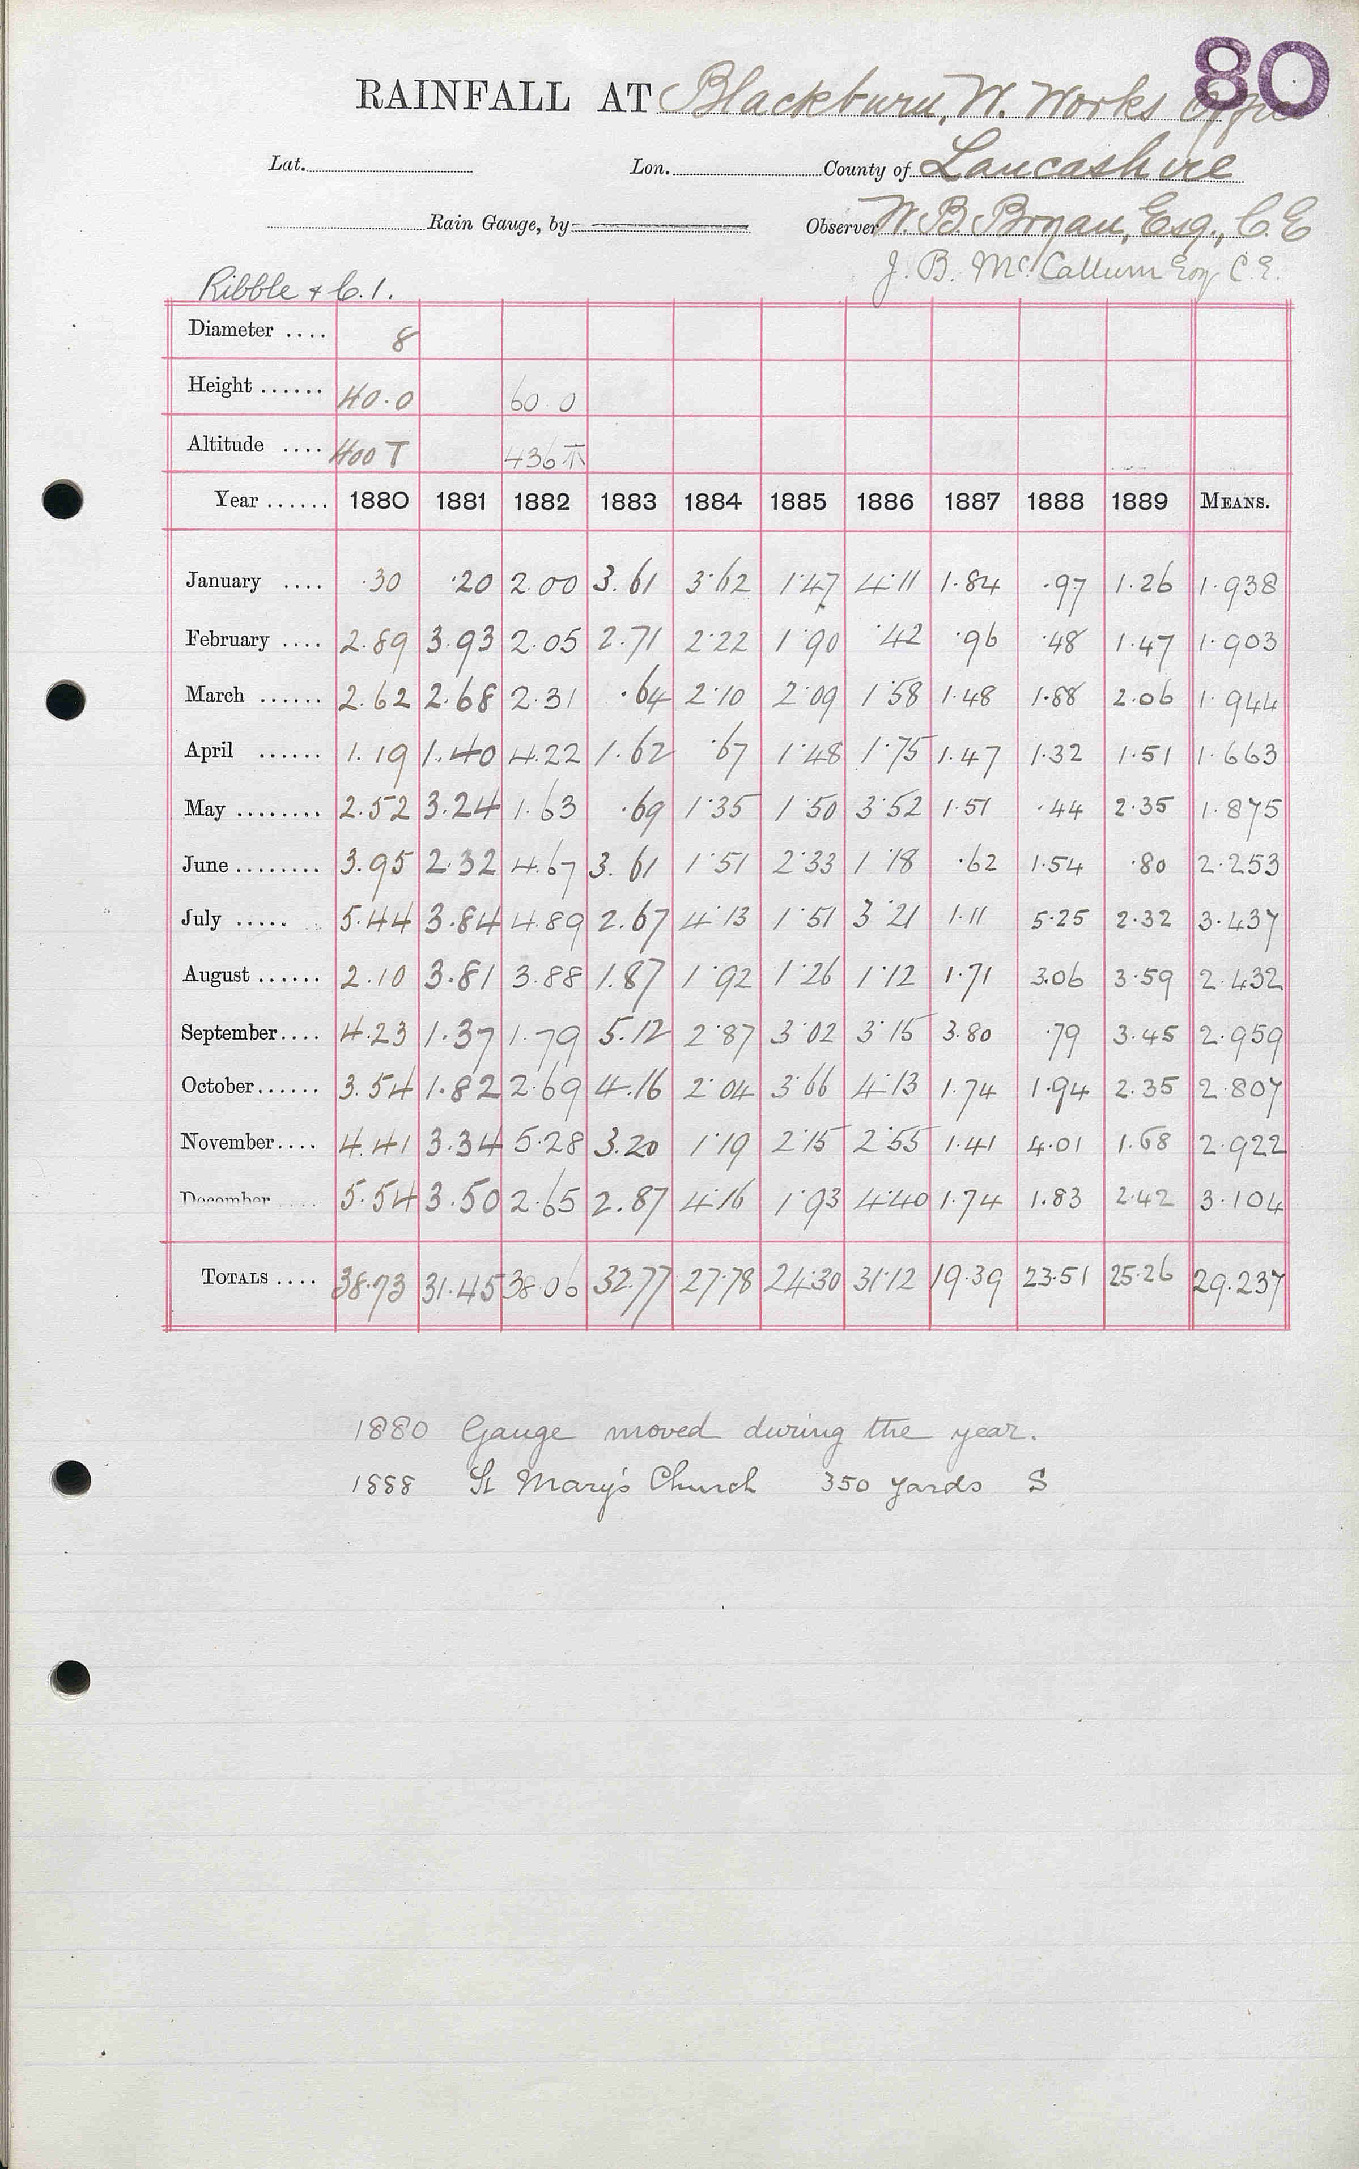 80
RAINFALL AT Blackburn, W. Works Office
Lat. Lon. County of Lancashire
Rain Gauge, by Observer W. B. Bryan, Esq., C.E
J. B. McCallum Esq C.E.
Ribble & C.1.
Diameter .... 8
Height ...... 40.0 60.0
Altitude .... 400 T 436 T
Year ...... 1880 1881 1882 1883 1884 1885 1886 1887 1888 1889 MEANS.
January .... .30 .20 2.00 3.61 3.62 1.47 4.11 1.84 .97 1.26 1.938
February .... 2.89 3.93 2.05 2.71 2.22 1.90 .42 .96 .48 1.47 1.903
March ...... 2.62 2.68 2.31 .64 2.10 2.09 1.58 1.48 1.88 2.06 1.944
April ...... 1.19 1.40 4.22 1.62 .67 1.48 1.75 1.47 1.32 1.51 1.663
May ........ 2.52 3.24 1.63 .69 1.35 1.50 3.52 1.51 .44 2.35 1.875
June ........ 3.95 2.32 4.67 3.61 1.51 2.33 1.18 .62 1.54 .80 2.253
July ..... 5.44 3.84 4.89 2.67 4.13 1.51 3.21 1.11 5.25 2.32 3.437
August ...... 2.10 3.81 3.88 1.87 1.92 1.26 1.12 1.71 3.06 3.59 2.432
September.... 4.23 1.37 1.79 5.12 2.87 3.02 3.15 3.80 .79 3.45 2.959
October...... 3.54 1.82 2.69 4.16 2.04 3.66 4.13 1.74 1.94 2.35 2.807
November.... 4.41 3.34 5.28 3.20 1.19 2.15 2.55 1.41 4.01 1.68 2.922
December .... 5.54 3.50 2.65 2.87 4.16 1.93 4.40 1.74 1.83 2.42 3.104
TOTALS .... 38.73 31.45 38.06 32.77 27.78 24.30 31.12 19.39 23.51 25.26 29.237
1880 Gauge moved during the year.
1888 St Mary's Church 350 yards S